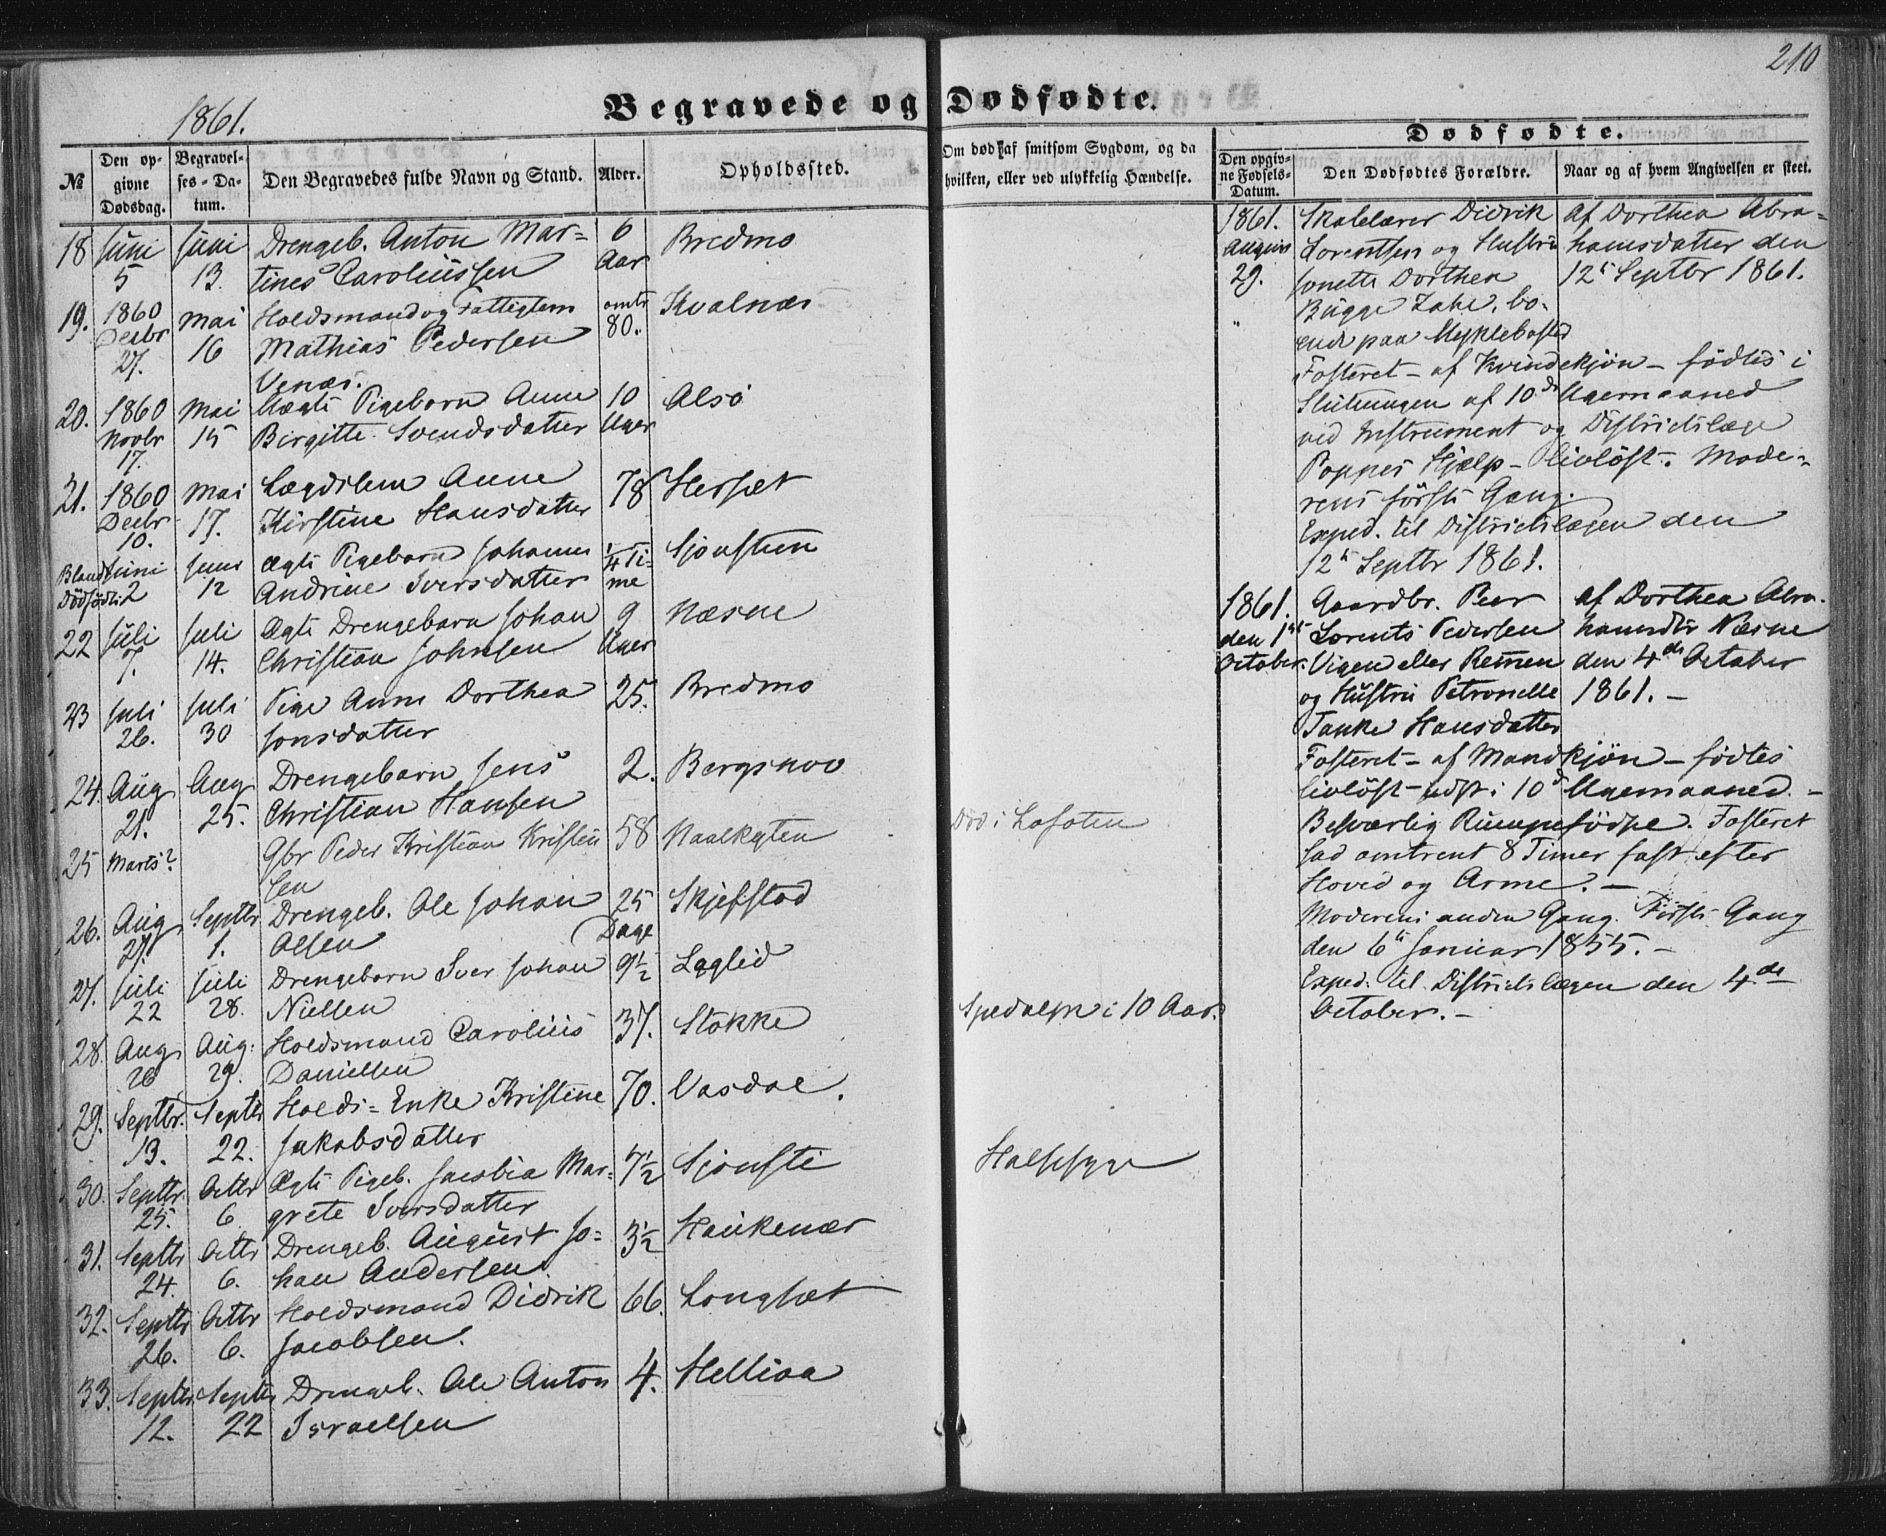 210
1861.
Begravede og Dødfødte.
Dødfødte.
№
Den op-
givne
Dødsdag.
Begravel-
ses-Da-
tum.
Den Begravedes fulde Navn og Stand.
Alder.
Opholdssted.
Om død af smitsom Sygdom, og da
hvilken, eller ved ulykkelig Hændelse.
Den opgiv-
ne Fødsels-
Datum.
Den Dødfødtes Forældre.
Naar og af hvem Angivelsen er skeet.
18 Juni Juni Drengeb. Anton Mar= 6 Bredmo
5 13. tines Caroliussen Aar
19. 1860 Mai Holdsmand og Fattiglem omtr Kvalnæs
Decbr 16 Mathias Pedersen 80.
27. Venæs.
20. 1860 Mai Uægte Pigebarn Anne 10 Alsø
Novbr 15 Birgitte Svendsdatter Uger
17.
21. 1860 Mai Lægdslem Anne 78 Hersæt
Decbr 17. Kirstine Hansdatter
10.
Blandt Juni Juni Ægte Pigebarn Johanne 1/4 Ti- Sjonsteen
Dödfödte 2 12 Andrine Iversdatter me
22 Juli Juli Ægte Drengebarn Johan 9 Næsne
7. 14. Christian Johnsen Uger
23 Juli Juli Pige Anne Dorthea 25. Bredmo
26. 30 Jonsdatter
24. Aug Aug Drengebarn Jens 2. Bergsnov
21. 25. Christian Hansen
25 Marts? Gbr Peder Kristian Kristen 58 Naalkyten Död i Lofoten
sen
26. Aug Septbr Drengeb. Ole Johan 25 Skjefstad
27. 1. Olsen Dage
27. Juli Juli Drengebarn Iver Johan 9½ Laglid
22 28. Nielsen
28. Aug Aug: Holdsmand Carolius 37. Stokke Spedalsk i 10 Aar.
26 29. Danielsen
29. Septbr. Septbr Holds=Enke Kristine 70. Vasdal.
13. 22. Jakobsdatter
30. Septbr. Octbr Ægte Pigeb. Jacobia Mar= 7½ Sjonsti Halssyge
25. 6. grete Iversdatter
31. Septbr Octbr Drengeb. August Jo= 3½ Haukenæs
24. 6. han Andersen.
32. Septbr Octbr Holdsmand Didrik 66. Longset
26. 6. Jacobsen.
33. Septbr Septbr Drengeb. Ole Anton 4. Hellisa
12. 22 Israelsen
1861. Skolelærer Didrik Af Dorthea Abra-
August Lorentsen og Hustru hamsdatter den
29. Jonette Dorthea 12te Septbr 1861.
Bugge Zahl, bo-
ende paa Myklebostad
Fosteret - af Kvindekjøn - fødtes i
Slutningen af 10de Ugemaaned
ved Instrument og Districtslæge
Poppes Hjælp - livløst. Mode-
rens første Gang.
Exped. til Districtslægen den
12te Septbr 1861.
1861. Gaardbr. Peer af Dorthea Abra-
den 1ste Lorents Pedersen hamsdtr Næsne
October. Vigen eller Remen den 4de October
og Hustru Petronelle 1861. -
Tanke Hansdatter
Fosteret - af Mandkjøn - fødtes
livløst - udst i 10de Ugemaaned. -
Besværlig Rumpefødse. Fosteret
sad omtrent 8 Timer fast efter
Hoved og Arme. -
Moderens anden Gang. Første Gang
den 6te Januar 1855. -
Exped. til Districtslægen den 4de
October. -